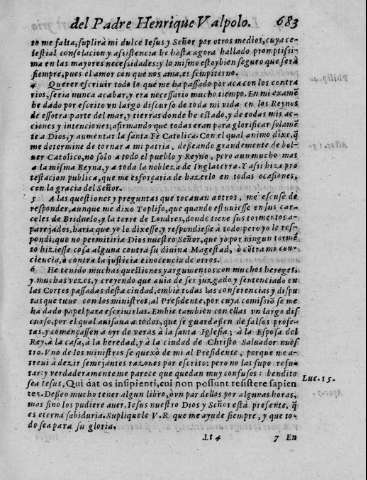 del Padre Henrique Valpolo. 683
me falta, suplirà mi dulce Iesus y Señor por otros medios, cuya ce-
lestial consolacion y asistencia he hasta agora hallado promptissi-
ma en las mayores necessidades: y lo mismo estoy bien seguro que serà
siempre, pues el amor con que nos ama, es sempiterno.
4 Querer escriuir todo lo que me ha passado por acà con los contra
rios, seria nunca acabar, y era necessario mucho tiempo. En mi examẽ
he dado por escrito vn largo discurso de toda mi vida en los Reynos
de essotra parte del mar, y tierras donde he estado, y de todas mis ac-
ciones y intenciones, afirmando que todas eran para glorificar solamẽ
te a Dios, y aumentar la santa Fè Catolica. Con el qual animo dixe, q̃
me determinè de tornar a mi patria, deseando grandemente de bol-
uer Catolico, no solo a todo el pueblo y Reyno, pero aun mucho mas
a la misma Reyna, y a toda la nobleza de Inglaterra. Y assi hize pro-
testacion publica, que me esforçaria de hazerlo en todas ocasiones,
con la gracia del Señor.
5 A las questiones y preguntas que tocauan a otros, me escusè de
responder, aunque me dixo Topliso, que quando estuuiesse en sus car-
celes de Briduelo, y la torre de Londres, donde tiene sus tormentos a-
parejados, haria que yo lo dixesse, y respondiesse à todo: pero yo le res-
pondi, que no permitiria Dios nuestro Señor, que yo por ningun tormẽ-
to hiziesse cosa alguna contra su diuina Magestad, ò contra mi con-
ciencia, ò contra la justicia è inocencia de otros.
6 He tenido muchas questiones, y argumentos con muchos hereges:
y muchas vezes, y creyendo que auia de ser juzgado y sentenciado en
las Cortes passadas desta ciudad, embiè todas las conferencias y dispu-
tas que tuue con los ministros, al Presidente, por cuya comission se me
ha dado papel para escriuirlas. Embiè tambien con ellas vn largo dis-
curso, por el qual auisaua a todos, que se guardassen de falsos profe-
tas, y començassen a oyr de veras à la santa Iglesia; à la Esposa del
Rey, à la casa, à la heredad, y à la ciudad de Christo Saluador nues-
tro. Vno de los ministros se quexò de mi al Presidente, porque me a-
treui à dezir semejantes razones por escrito; pero no las supo refu-
tar: y verdaderamente me parece que quedan muy confusos: bendito
sea Iesus, Qui dat os insipienti, cui non possunt resistere sapien
tes. Deseo mucho tener algun libro, ò vn par dellos por algunas horas,
mas sino los pudiere auer, Iesus nuestro Dios y Señor està presente, q̃
es eterna sabiduria. Supliquele V. R. que me ayude siempre, y que to-
do sea para su gloria.
Luc. 15.
7 En